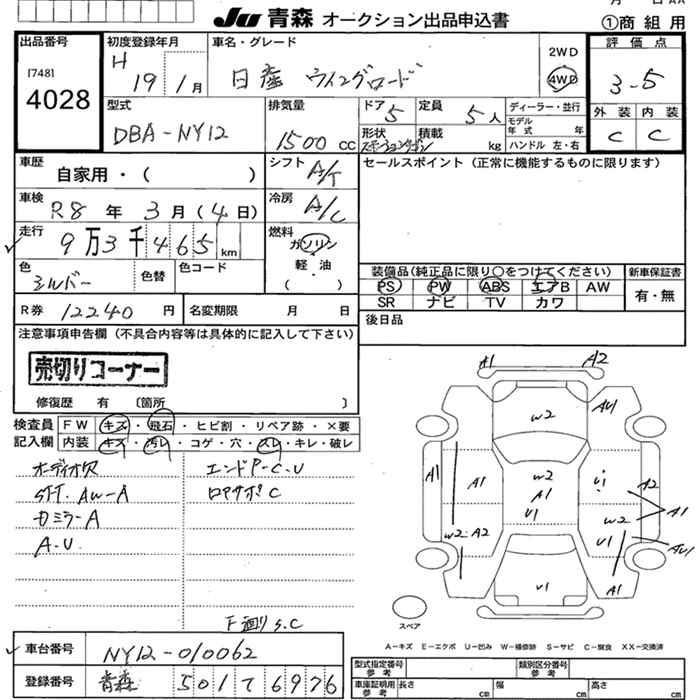 月 日 AA
JU 青森 オークション出品申込書
①商組用
出品番号
[748]
4028
初度登録年月
H 19年 1月
車名・グレード
日産 ウィングロード
2WD
4WD
評価点
3-5
外装 内装
C C
型式
DBA-NY12
排気量
1500 CC
ドア 5
定員 5人
形状 ステーションワゴン
積載 kg
ディーラー・並行
モデル年式 年
ハンドル 左・右
車歴
自家用・( )
シフト A/T
セールスポイント(正常に機能するものに限ります)
車検
R8年 3月(4日)
冷房 A/C
走行
9万3千465km
燃料
ガソリン
軽・油
( )
色
シルバー
色替
色コード
装備品(純正品に限り○をつけてください)
新車保証書
PS PW ABS エアB AW
SR ナビ TV カワ
有・無
R券 12240円
名変期限 月 日
後日品
注意事項申告欄(不具合内容等は具体的に記入して下さい)
売切りコーナー
修復歴 有 〔箇所 〕
検査員記入欄
FW キズ・飛石・ヒビ割・リペア跡・×要
内装 キズ・汚レ・コゲ・穴・スレ・キレ・破レ
オーディオ欠
エンドP-C.U
STT.AW-A
ロアサポC
カミラーA
A-U
下廻りS.C
A1 A2
W2 AU1
A1 A1 W2 A1 U1 U1 A2
W2 A1
W2-A2 U1 AU1
U1 A1
スペア
A-キズ E-エクボ U-凹み W-補修跡 S-サビ C-腐食 XX-交換済
車台番号
NY12-010062
登録番号
青森 501 て 6976
型式指定番号 参考
類別区分番号 参考
車庫証明用 参考
長さ cm
幅 cm
高さ cm